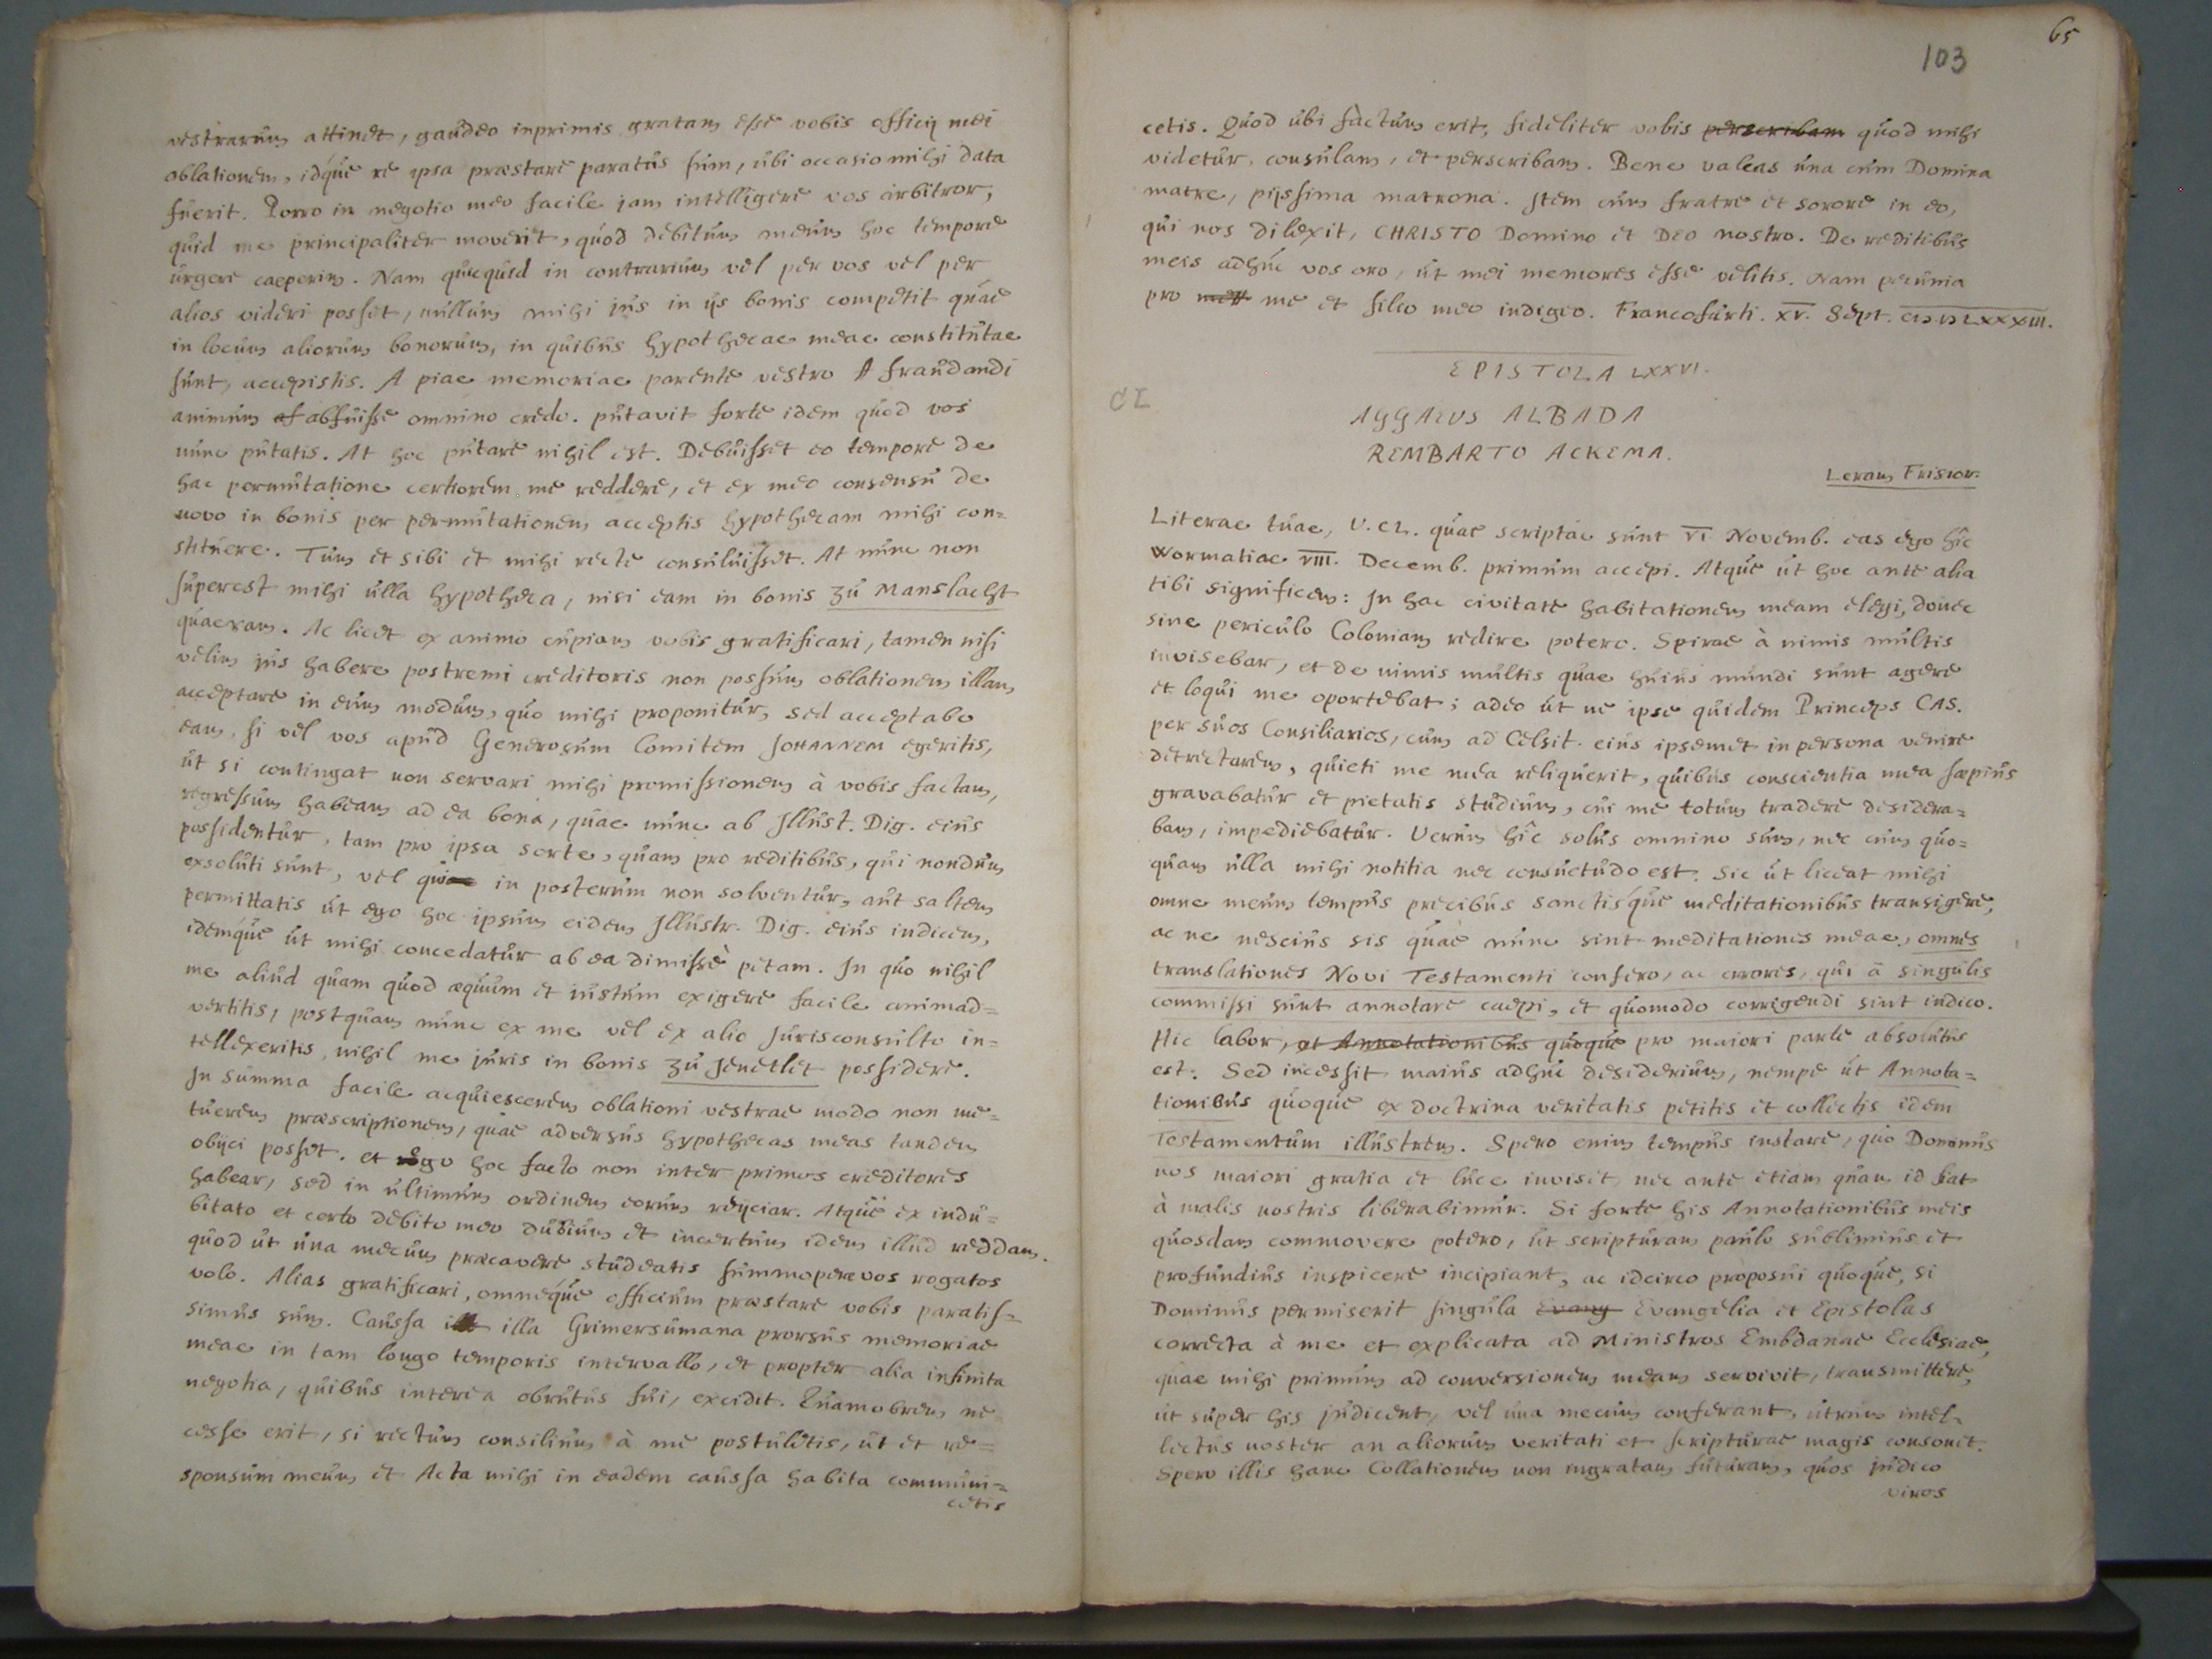 vestrarum attinet, gaudeo inprimis gratam esse vobis officij mei
oblationem, idque re ipsa præstare paratus sum, ubi occasio mihi data
fuerit. Porro in negotio meo facile jam intelligere vos arbitror,
quid me principaliter moverit, quod debitum meum hoc tempore
urgere caeperim. Nam quicquid in contrarium vel per vos vel per
alios videri posset, nullum mihi jus in ijs bonis competit quae
in locum aliorum bonorum, in quibus hypothecae meae constitutae
sunt, accepistis. A piae memoriae parente vestro fraudandi
animum abfuisse omnino credo. putavit forte idem quod vos
nunc putatis. At hoc putare nihil est. Debuisset eo tempore de
hac permutatione certiorem me reddere, et ex meo consensu de
novo in bonis per permutationem acceptis hypothecam mihi con=
stituere. Tum et sibi et mihi recte consuluisset. At nunc non
superest mihi ulla hypotheca, nisi eam in bonis zu Manslacht
quaeram. Ac licet ex animo cupiam vobis gratificari, tamen nisi
velim jus habere postremi creditoris non possum oblationem illam
acceptare in eum modum, quo mihi proponitur, sed acceptabo
eam, si vel vos apud Generosum Comitem JOHANNEM egeritis,
ut si contingat non servari mihi promissionem à vobis factam,
regressum habeam ad ea bona, quae nunc ab Illust. Dig. eius
possidentur, tam pro ipsa sorte, quam pro reditibus, qui nondum
exsoluti sunt, vel qui in posterum non solventur, aut saltem
permittatis ut ego hoc ipsum eidem Illustr. Dig. eius indicem,
idemque ut mihi concedatur ab ea dimissè petam. In quo nihil
me aliud quam quod æquum et iustum exigere facile animad=
vertitis, postquam nunc ex me vel ex alio Jurisconsulto in=
tellexeritis, nihil me juris in bonis zu Jenetlet possidere.
In summa facile acquiescerem oblationi vestrae modo non me=
tuerem præscriptionem, quae adversus hypothecas meas tandem
obijci posset. et ego hoc facto non inter primos creditores
habear, sed in ultimum ordinem eorum reijciar. Atque ex indu=
bitato et certo debito meo dubium et incertum idem illud reddam.
quod ut una mecum præcavere studeatis summopere vos rogatos
volo. Alias gratificari, omneque officium præstare vobis paratis=
simus sum. Caussa illa Grimersumana prorsus memoriae
meae in tam longo temporis intervallo, et propter alia infinita
negotia, quibus interea obrutus fui, excidit. Quamobrem ne
cesse erit, si rectum consilium à me postuletis, ut et re=
sponsum meum et Acta mihi in eadem caussa habita communi=
cetis
65
103
cetis. Quod ubi factum erit, fideliter vobis perscribam quod mihi
videtur, consulam, et perscribam. Bene valeas una cum Domina
matre, pijssima matrona. Item cum fratre et sorore in eo,
qui nos dilexit, CHRISTO Domino et DEO nostro. De reditibus
meis adhuc vos oro, ut mei memores esse velitis. Nam pecunia
pro me et filio meo indigeo. Francofurti. XV. Sept. CIƆ IƆ LXXXIII.
EPISTOLA LXXVI.
CL
AGGAEUS ALBADA
REMBARTO ACKEMA.
Leram Frisior.
Literae tuae, V. CL. quae scriptae sunt VI Novemb. eas ego hîc
Wormatiae VIII. Decemb. primum accepi. Atque ut hoc ante alia
tibi significem: In hac civitate habitationem meam elegi, donec
sine periculo Coloniam redire potero. Spirae à nimis multis
invisebar, et de nimis multis quae huius mundi sunt agere
et loqui me oportebat; adeo ut ne ipse quidem Princeps CAS.
per suos Consiliarios, cum ad Celsit. eius ipsemet in persona venire
detrectarem, quieti me mea reliquerit, quibus conscientia mea sæpius
gravabatur et pietatis studium, cui me totum tradere desidera=
bam, impediebatur. Verum hîc solus omnino sum, nec cum quo=
quam ulla mihi notitia nec consuetudo est. Sic ut liceat mihi
omne meum tempus precibus sanctisque meditationibus transigere,
ac ne nescius sis quae nunc sint meditationes meae, omnes
translationes Novi Testamenti confero, ac errores, qui à singulis
commissi sunt annotare caepi, et quomodo corrigendi sint indico.
Hic labor, ut Annotationibus quoque pro maiori parte absolutus
est. Sed incessit maius adhuc desiderium, nempe ut Annota=
tionibus quoque ex doctrina veritatis petitis et collectis idem
Testamentum illustrem. Spero enim tempus instare, quo Dominus
nos maiori gratia et luce invisit, nec ante etiam quam id fiat
à malis nostris liberabimur. Si forte his Annotationibus meis
quosdam commovere potero, ut scripturam paulo sublimius et
profundius inspicere incipiant, ac idcirco proposui quoque, si
Dominus permiserit singula Evang Evangelia et Epistolas
correcta à me et explicata ad Ministros Embdanae Ecclesiae,
quae mihi primum ad conversionem meam servivit, transmittere,
ut super his judicent, vel una mecum conferant, utrum intel=
lectus noster an aliorum veritati et scripturae magis consonet.
Spero illis hanc Collationem non ingratam futuram, quos judico
viros